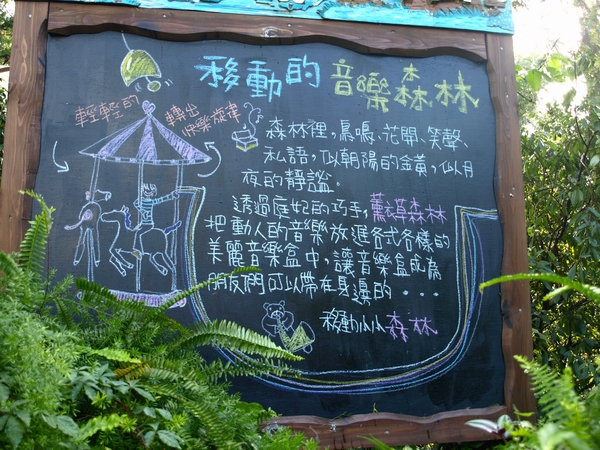 移動的音樂森林
輕輕的
轉出
快樂旋律
森林裡,鳥鳴、花開、笑聲、
私語,似朝陽的金黃,似月
夜的靜謐。
透過庭妃的巧手,薰衣草森林
把動人的音樂放進各式各樣的
美麗音樂盒中,讓音樂盒成為
朋友們可以帶在身邊的...
移動小小森林